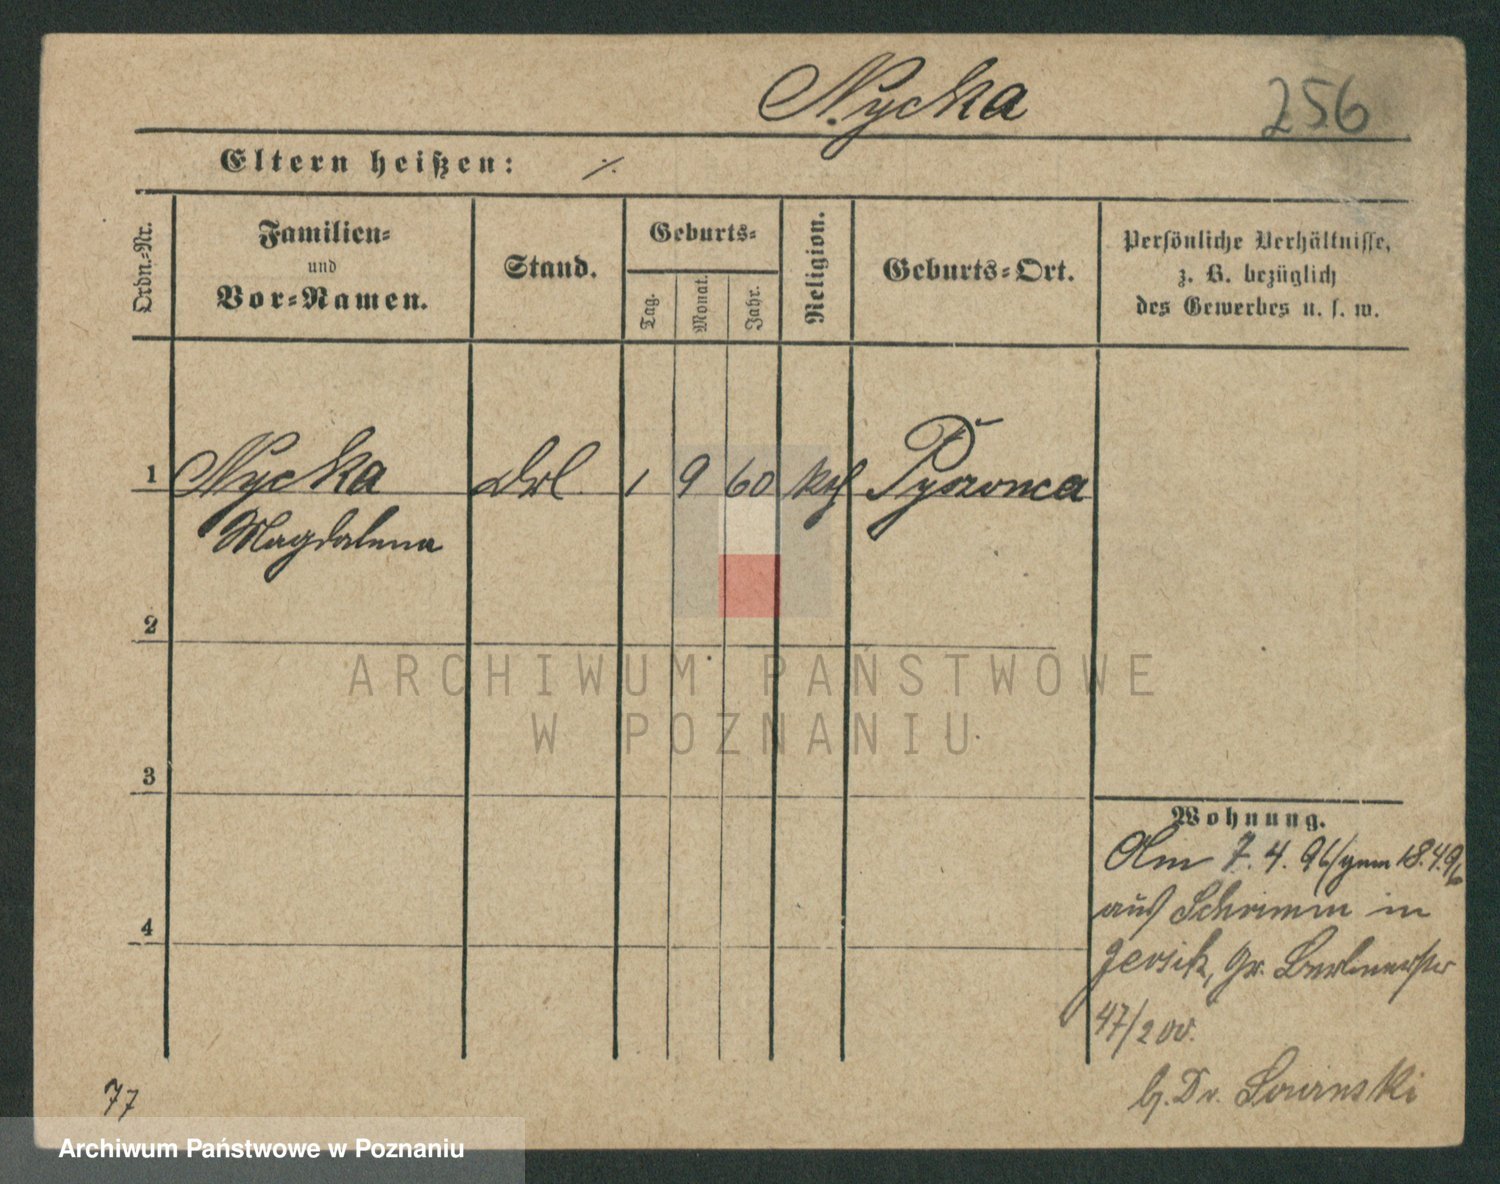 Nycka
256
Eltern heißen: ·/.
Ordn.-Nr.
Familien-
und
Vor-Namen.
Stand.
Geburts-
Tag.
Monat.
Jahr.
Religion.
Geburts-Ort.
Persönliche Verhältnisse,
z. B. bezüglich
des Gewerbes u. s. w.
1 Nycka 1 9 60 kth Pyszonca
Magdalena
2
3
4
ARCHIWUM PAŃSTWOWE
W POZNANIU
Wohnung.
Am 7. 4. 96/gem 18.4.96
aus Schrimm in
Jersik, Gr. Berlinerstr
47/200.
b. Dr.
77
Archiwum Państwowe w Poznaniu